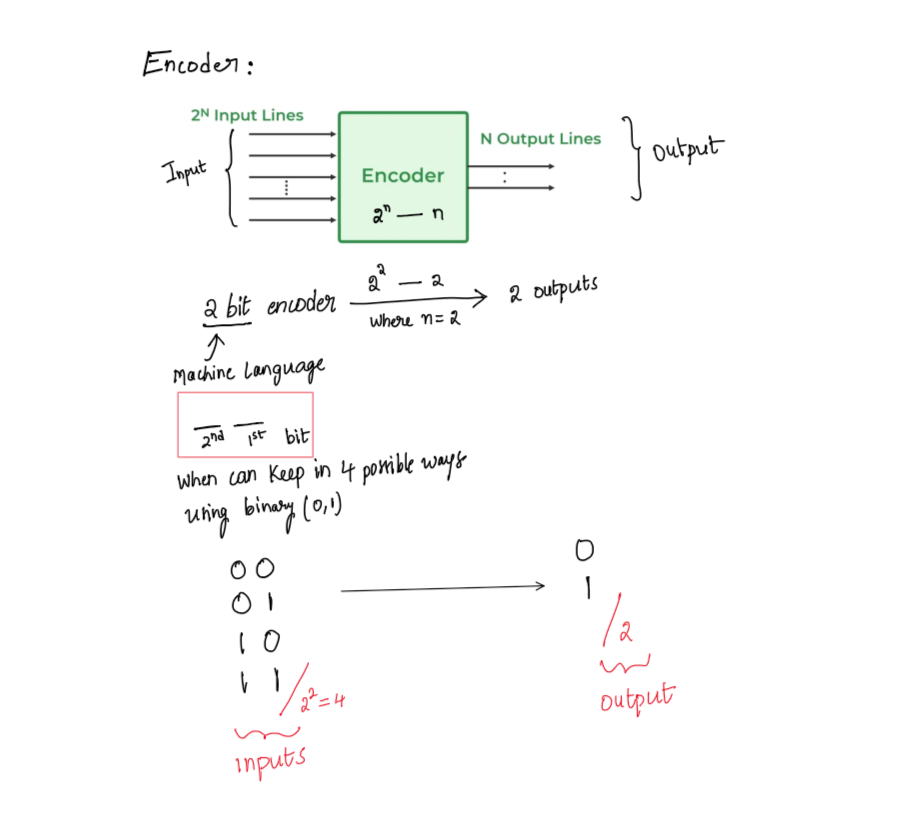 Encoder:
2ᴺ Input Lines
N Output Lines
Input
Output
Encoder
2ⁿ — n
2 bit encoder
2² — 2
where n=2
2 outputs
Machine Language
2nd 1st bit
When can Keep in 4 possible ways
using binary (0,1)
0 0
0 1
1 0
1 1
2²=4
inputs
0
1
2
output